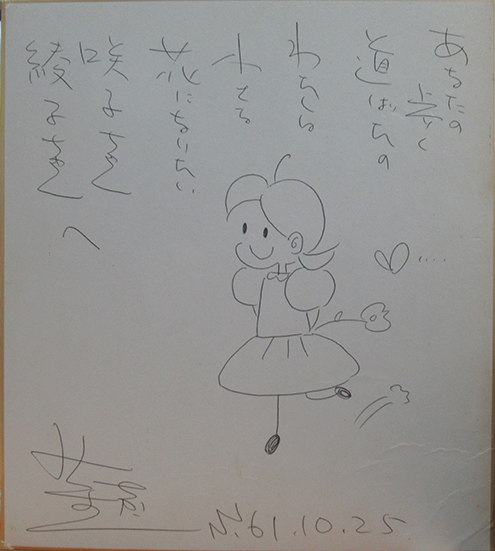 あなたの
歩く
道ばたの
わたしは
小さな
花になりたい
咲子ちゃん
綾子ちゃん
へ
S.61.10.25